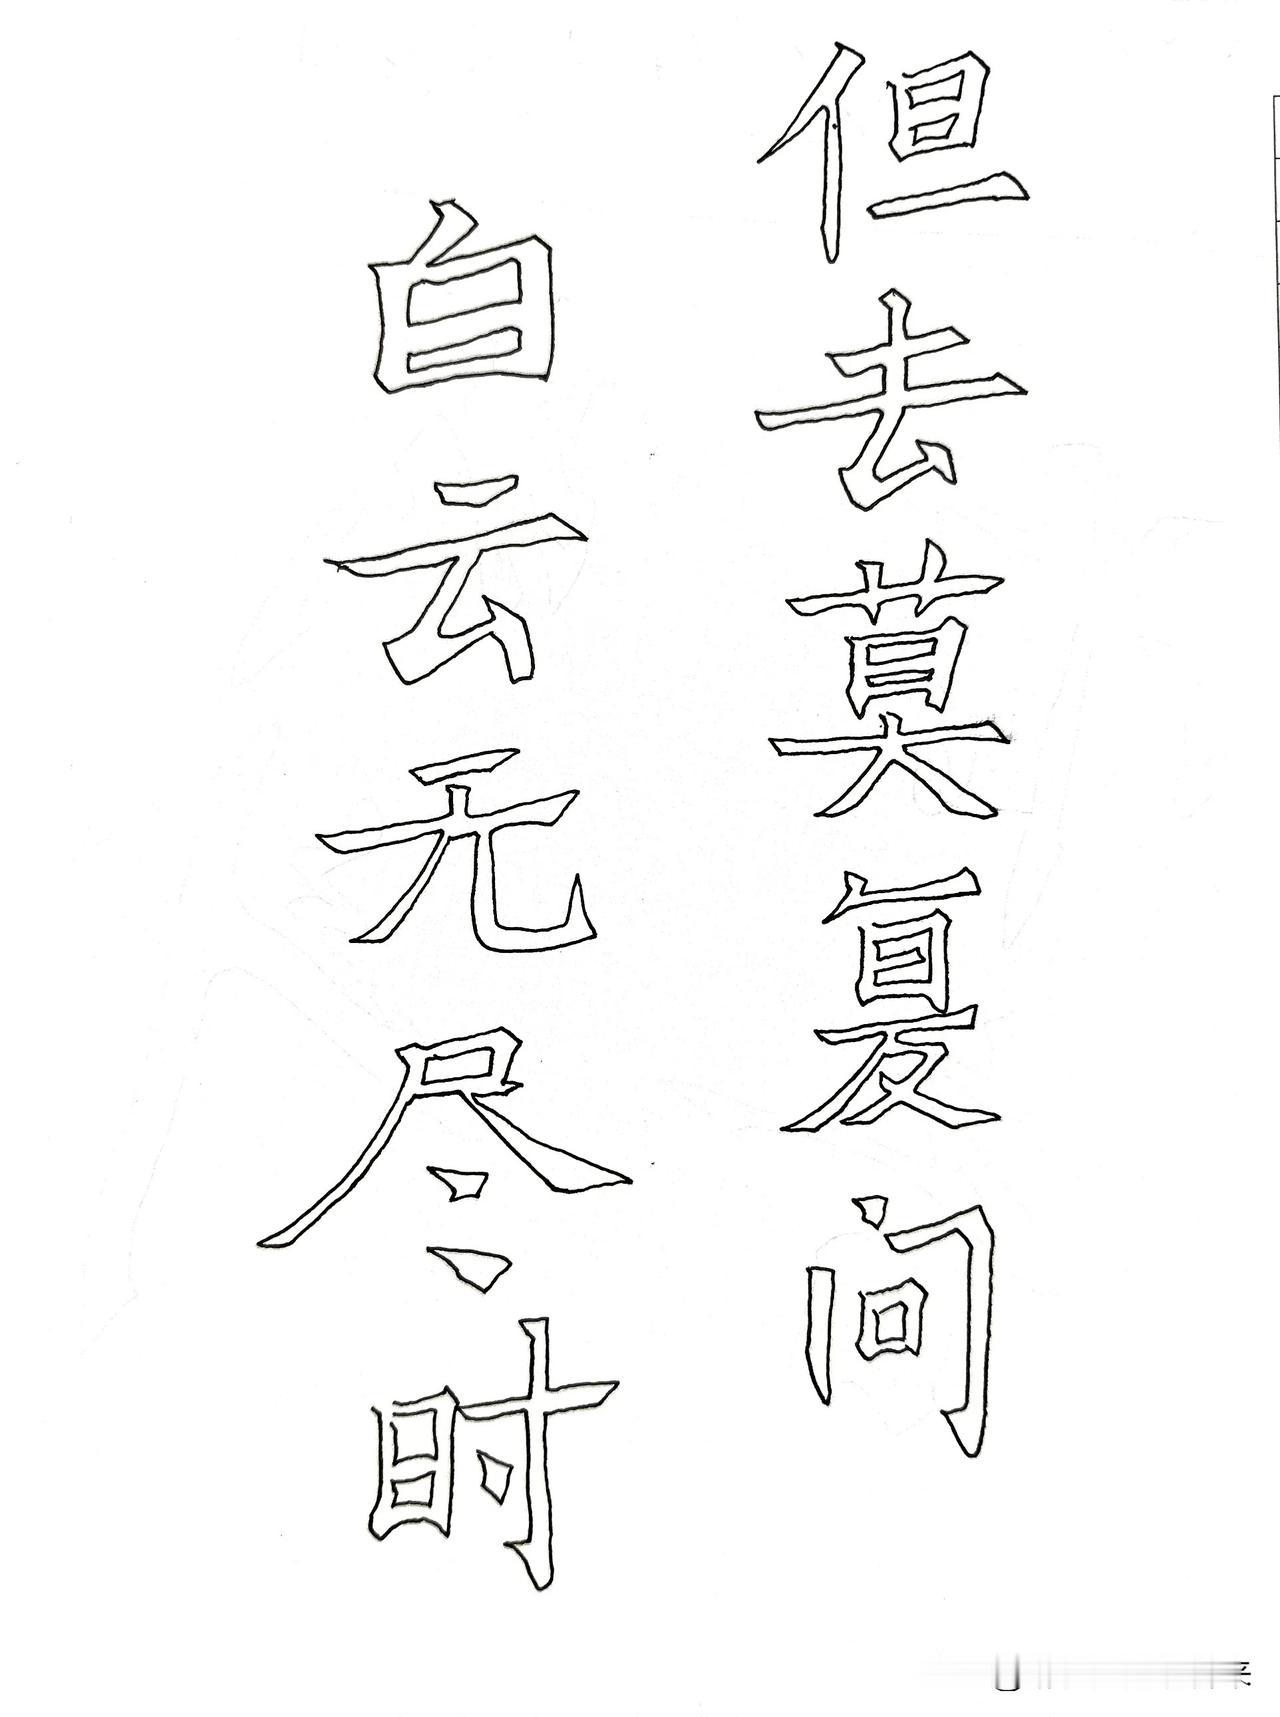 但去莫复问
白云无尽时